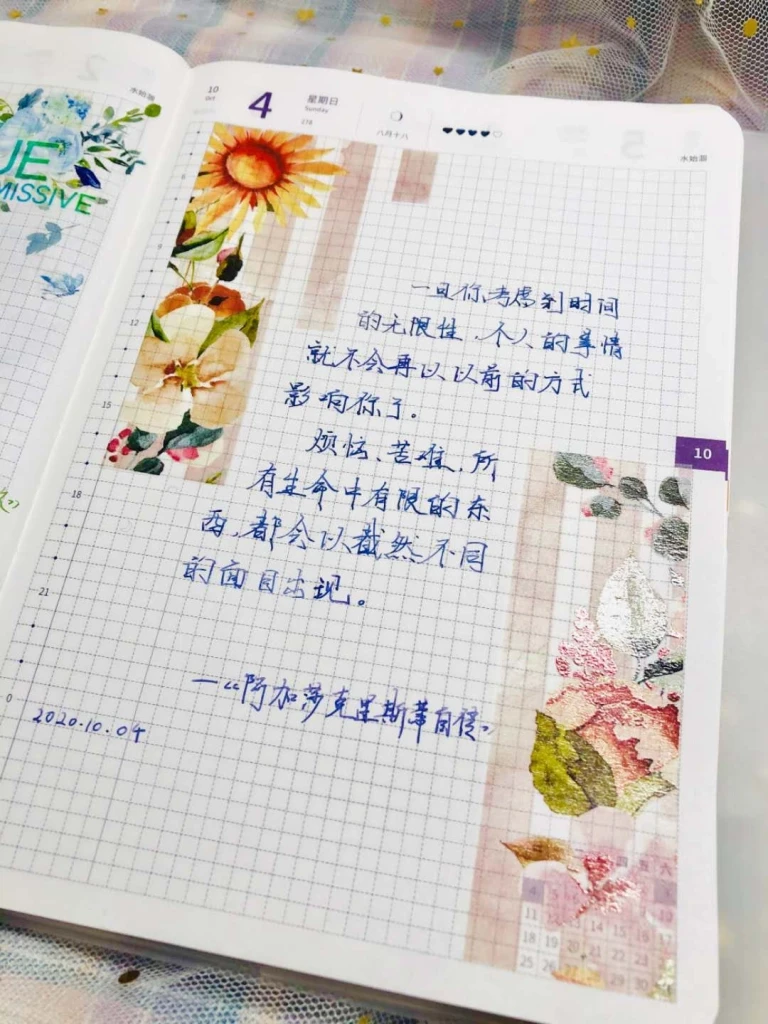 UE
MISSIVE
水始涸
10
Oct
4
星期日
Sunday
278
八月十八
水始涸
6
12
15
18
21
0
一旦你考虑到时间
的无限性、个人的事情
就不会再以以前的方式
影响你了。
烦恼、苦难、所
有生命中有限的东
西,都会以截然不同
的面目出现。
—《阿加莎克里斯蒂自传》
2020.10.04
10
四 五 六
4 5 10
11 12 13 14 15 16 17
18 19 20 21 22 23 24
25 26 27 29 30